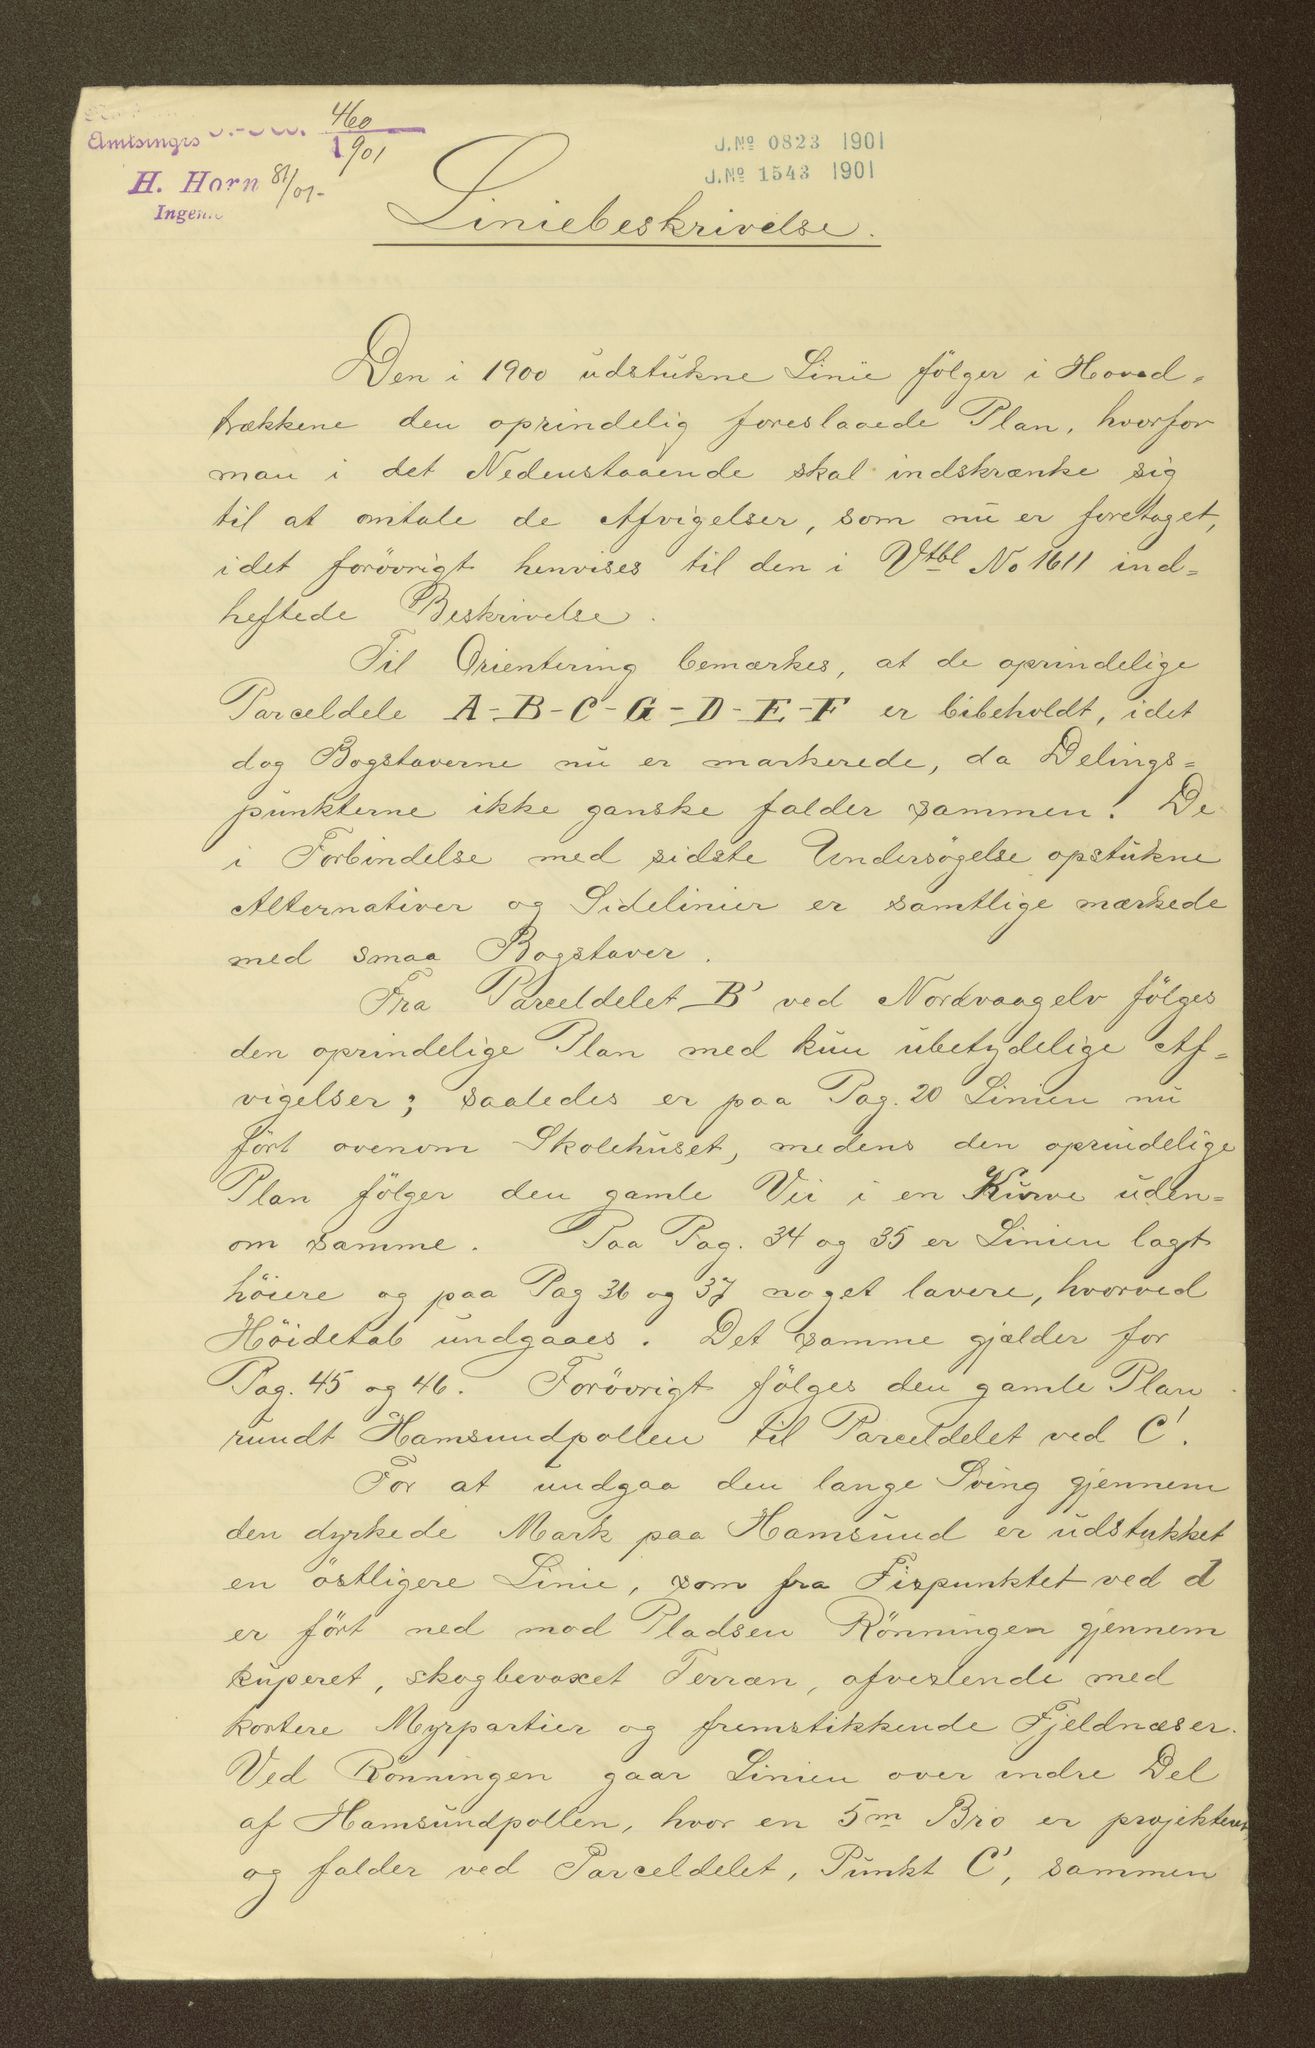 Amtsingrs 460
1901
H. Horn 81/01-
J.No 0823 1901
J.No 1543 1901
Liniebeskrivelse.
Den i 1900 udstukne Linie fölger i Hoved-
trækkene den oprindelig foreslaaede Plan, hvorfor
man i det Nedenstaaende skal indskrænke sig
til at omtale de Afvigelser, som nu er foretaget,
idet forövrigt henvises til den i Vtbl No 1611 ind-
heftede Beskrivelse.
Til Orientering bemærkes, at de oprindelige
Parceldele A-B-C-G-D-E-F er bibeholdt, idet
dog Bogstaverne nu er markerede, da Delings-
punkterne ikke ganske falder sammen. De
i Forbindelse med sidste Undersögelse opstukne
Alternativer og Sidelinier er samtlige mærkede
med smaa Bogstaver.
Fra Parceldelet B' ved Nordvaagelv fölges
den oprindelige Plan med kun ubetydelige Af-
vigelser; saaledes er paa Pag. 20 Linien nu
fört ovenom Skolehuset, medens den oprindelige
Plan fölger den gamle Vei i en Kurve uden-
om samme. Paa Pag. 34 og 35 er Linien lagt
höiere og paa Pag 36 og 37 noget lavere, hvorved
Höidetab undgaaes. Det samme gjælder for
Pag. 45 og 46. Forövrigt fölges den gamle Plan
rundt Hamsundpollen til Parceldelet ved C'.
For at undgaa den lange Sving gjennem
den dyrkede Mark paa Hamsund er udstukket
en östligere Linie, som fra Fixpunktet ved d
er fört ned mod Pladsen Rönningen gjennem
kuperet, skogbevoxet Terræn, afvexlende med
kortere Myrpartier og fremstikkende Fjeldnæser.
Ved Rönningen gaar Linien over indre Del
af Hamsundpollen, hvor en 5m Bro er projekteret,
og falder ved Parceldelet, Punkt C', sammen